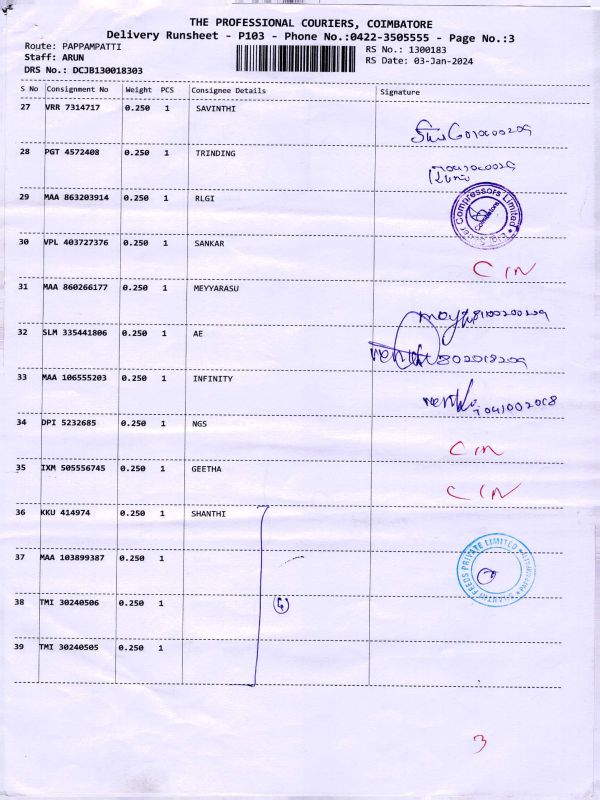 THE PROFESSIONAL COURIERS, COIMBATORE
Delivery Runsheet - P103 - Phone No.:0422-3505555 - Page No.:3
Route: PAPPAMPATTI
RS No.: 1300183
Staff: ARUN
RS Date: 03-Jan-2024
DRS No.: DCJB130018303
S No Consignment No Weight PCS Consignee Details Signature
27 VRR 7314717 0.250 1 SAVINTHI
28 PGT 4572408 0.250 1 TRINDING
29 MAA 863203914 0.250 1 RLGI
Compressors Limited
Coimbatore
30 VPL 403727376 0.250 1 SANKAR
CIN
31 MAA 860266177 0.250 1 MEYYARASU
32 SLM 335441806 0.250 1 AE
33 MAA 106555203 0.250 1 INFINITY
34 DPI 5232685 0.250 1 NGS
CIN
35 IXM 505556745 0.250 1 GEETHA
CIN
36 KKU 414974 0.250 1 SHANTHI
37 MAA 103899387 0.250 1
SHANTHI FEEDS PRIVATE LIMITED
38 TMI 30240506 0.250 1
4
39 TMI 30240505 0.250 1
3